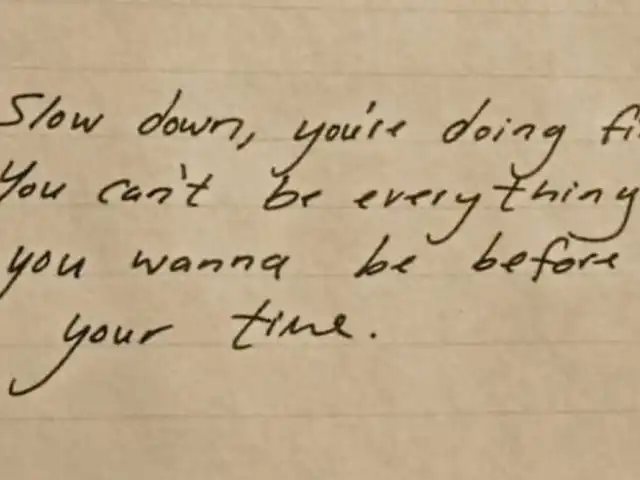 Slow down, you're doing
You can't be everything
you wanna be before
your time.